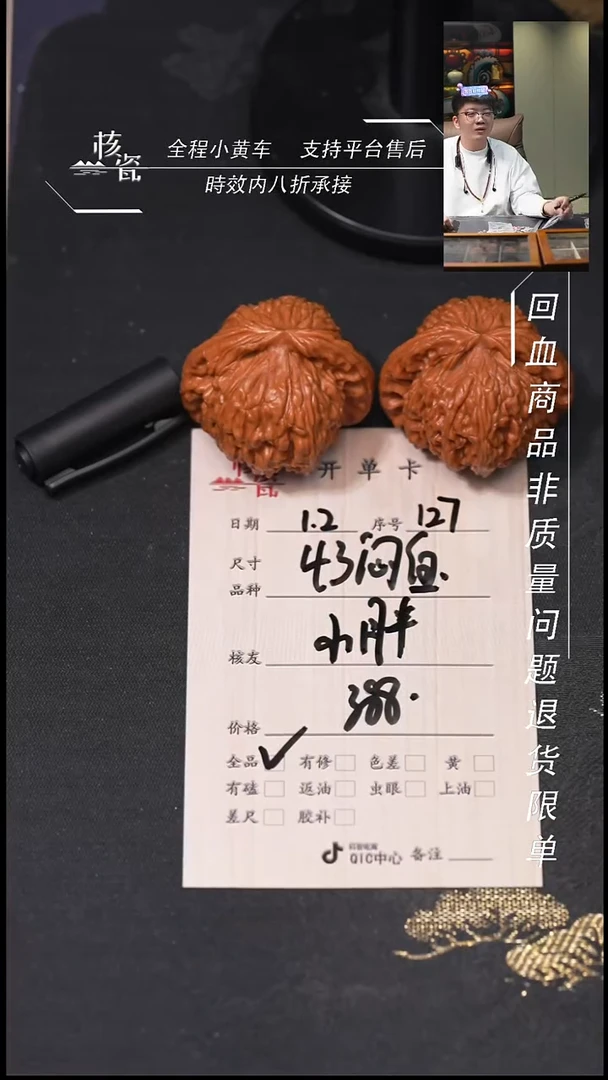 核瓷
全程小黄车 支持平台售后
時效内八折承接
回血商品非质量问题退货限单
核瓷 开单卡
日期 1.2 序号 127
尺寸
品种 43闷鱼.
核友 小胖
价格 388.
全品 ✓ 有修 色差 黄
有磕 返油 虫眼 上油
差尺 胶补
QIC中心 备注